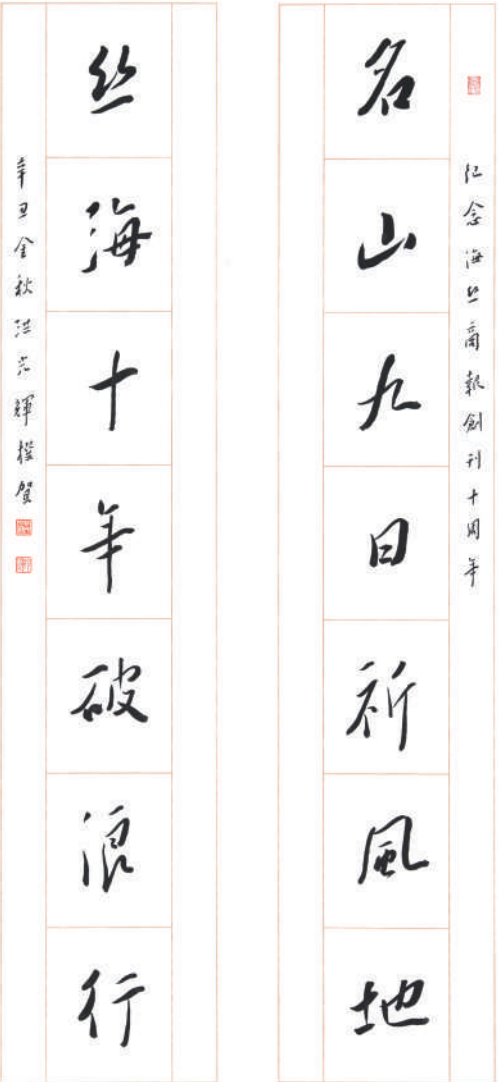 纪念海丝商報創刊十周年
名山九日祈風地
丝海十年破浪行
辛丑金秋洪光輝撰贺